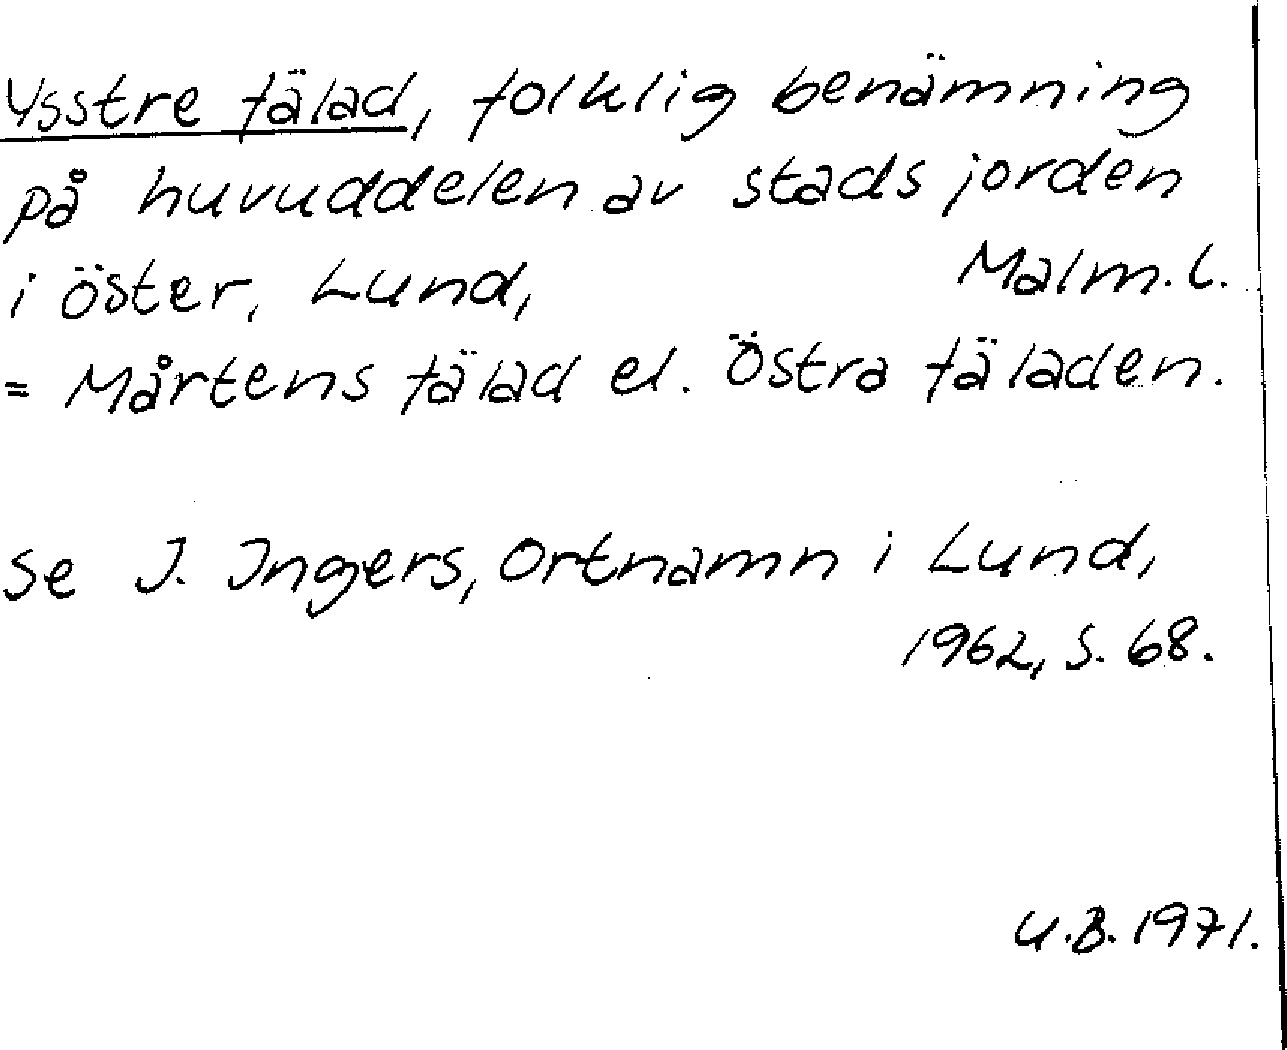 Ysstre fälad, folklig benämning
på huvuddelen av stadsjorden
i öster, Lund, Malm. l.
= Mårtens fälad el. Östra fäladen.
Se J. Ingers, Ortnamn i Lund,
1962, s. 68.
U.B. 1971.